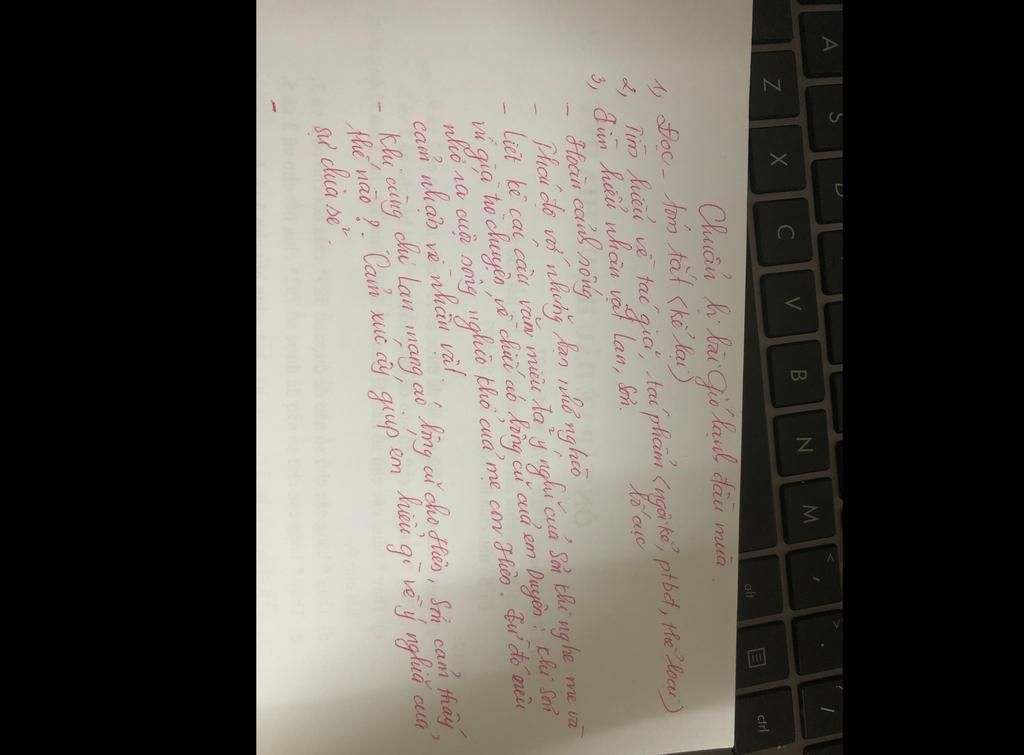 Chuẩn bị bài Gió lạnh đầu mùa.
1, Đọc - tóm tắt (kể lại)
2, Tìm hiểu về tác giả, tác phẩm (ngôi kể, ptbđ, thể loại)
bố cục
3, Tìm hiểu nhân vật Lan, Sơn.
- Hoàn cảnh sống
- Thái độ với những bạn nhỏ nghèo
- Liệt kê các câu văn miêu tả ý nghĩ của Sơn khi nghe mẹ và
vú già trò chuyện về chiếc áo bông cũ của em Duyên; khi Sơn
nhớ ra cuộc sống nghèo khổ của mẹ con Hiên. Từ đó nêu
cảm nhận về nhân vật
- Khi cùng chị Lan mang áo bông cũ cho Hiên, Sơn cảm thấy
thế nào? Cảm xúc ấy giúp em hiểu gì về ý nghĩa của
sự chia sẻ.
-
A
S
D
Z
X
C
V
B
N
M
<
,
>
.
/
alt
ctrl